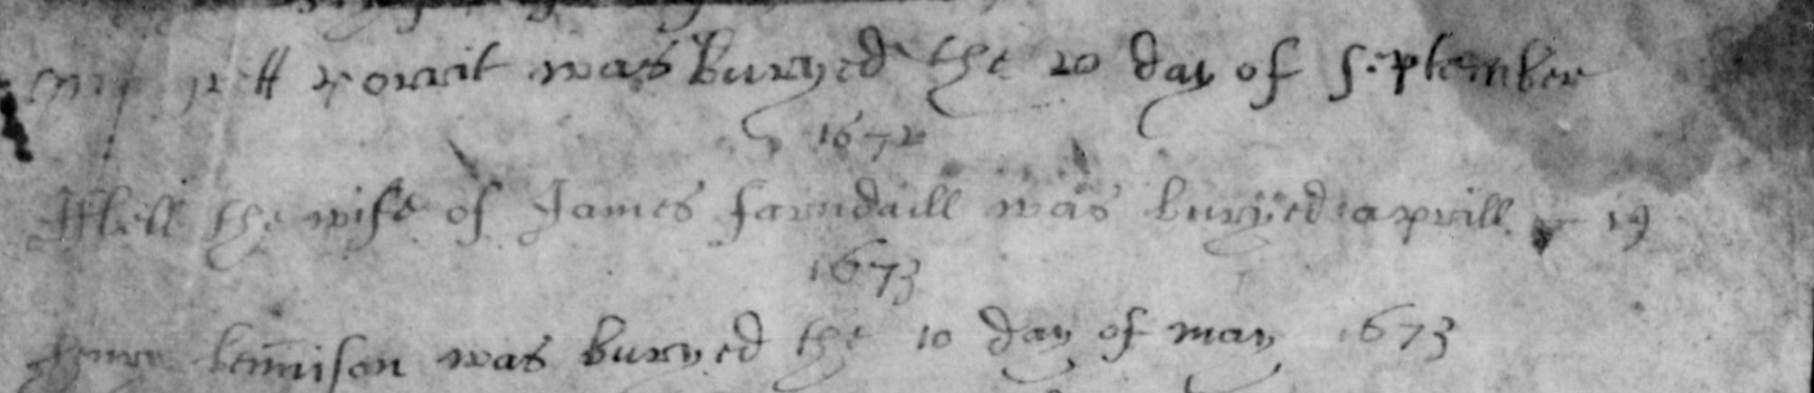 was buryed the 20 day of September
1672
Issbell the wife of James farndaill was buryed aprill 19
1673
henry bennison was buryed the 10 day of may 1673